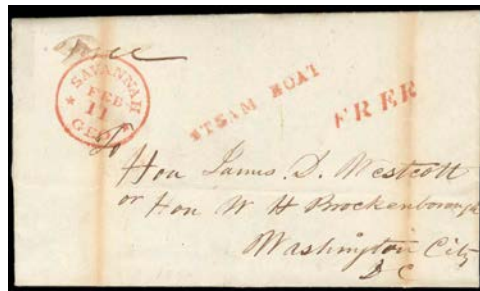 Free
SAVANNAH
FEB
11
GEO
STEAM BOAT
FREE
To
Hon James. D. Westcott
or Hon W H Brockenborough
Washington City
D C